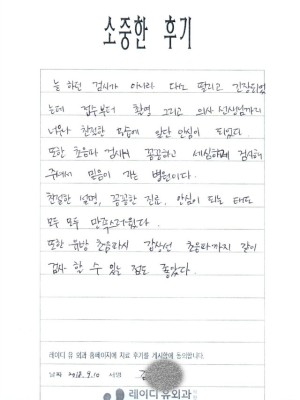 소중한 후기
늘 하던 검사가 아니라 다소 떨리고 긴장되었
는데 접수부터 촬영 그리고 의사 선생님까지
너무나 친절한 모습에 일단 안심이 되었다.
또한 초음파 검사시 꼼꼼하고 세심하게 검사해
주셔서 믿음이 가는 병원이다.
친절한 설명, 꼼꼼한 진료, 안심이 되는 태도
모두 모두 만족스러웠다.
또한 유방 초음파시 갑상선 초음파까지 같이
검사 할 수 있는 점도 좋았다.
레이디 유 외과 홈페이지에 치료 후기를 게시함에 동의합니다.
날짜 2018. 9. 10 서명
레이디유외과